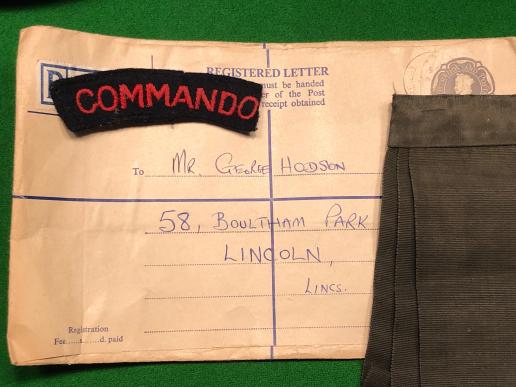 COMMANDO
REGISTERED LETTER
must be handed
of the Post
receipt obtained
To Mr. George Hodson
58, Boultham Park
Lincoln,
Lincs.
Registration
Fee.....s.....d. paid